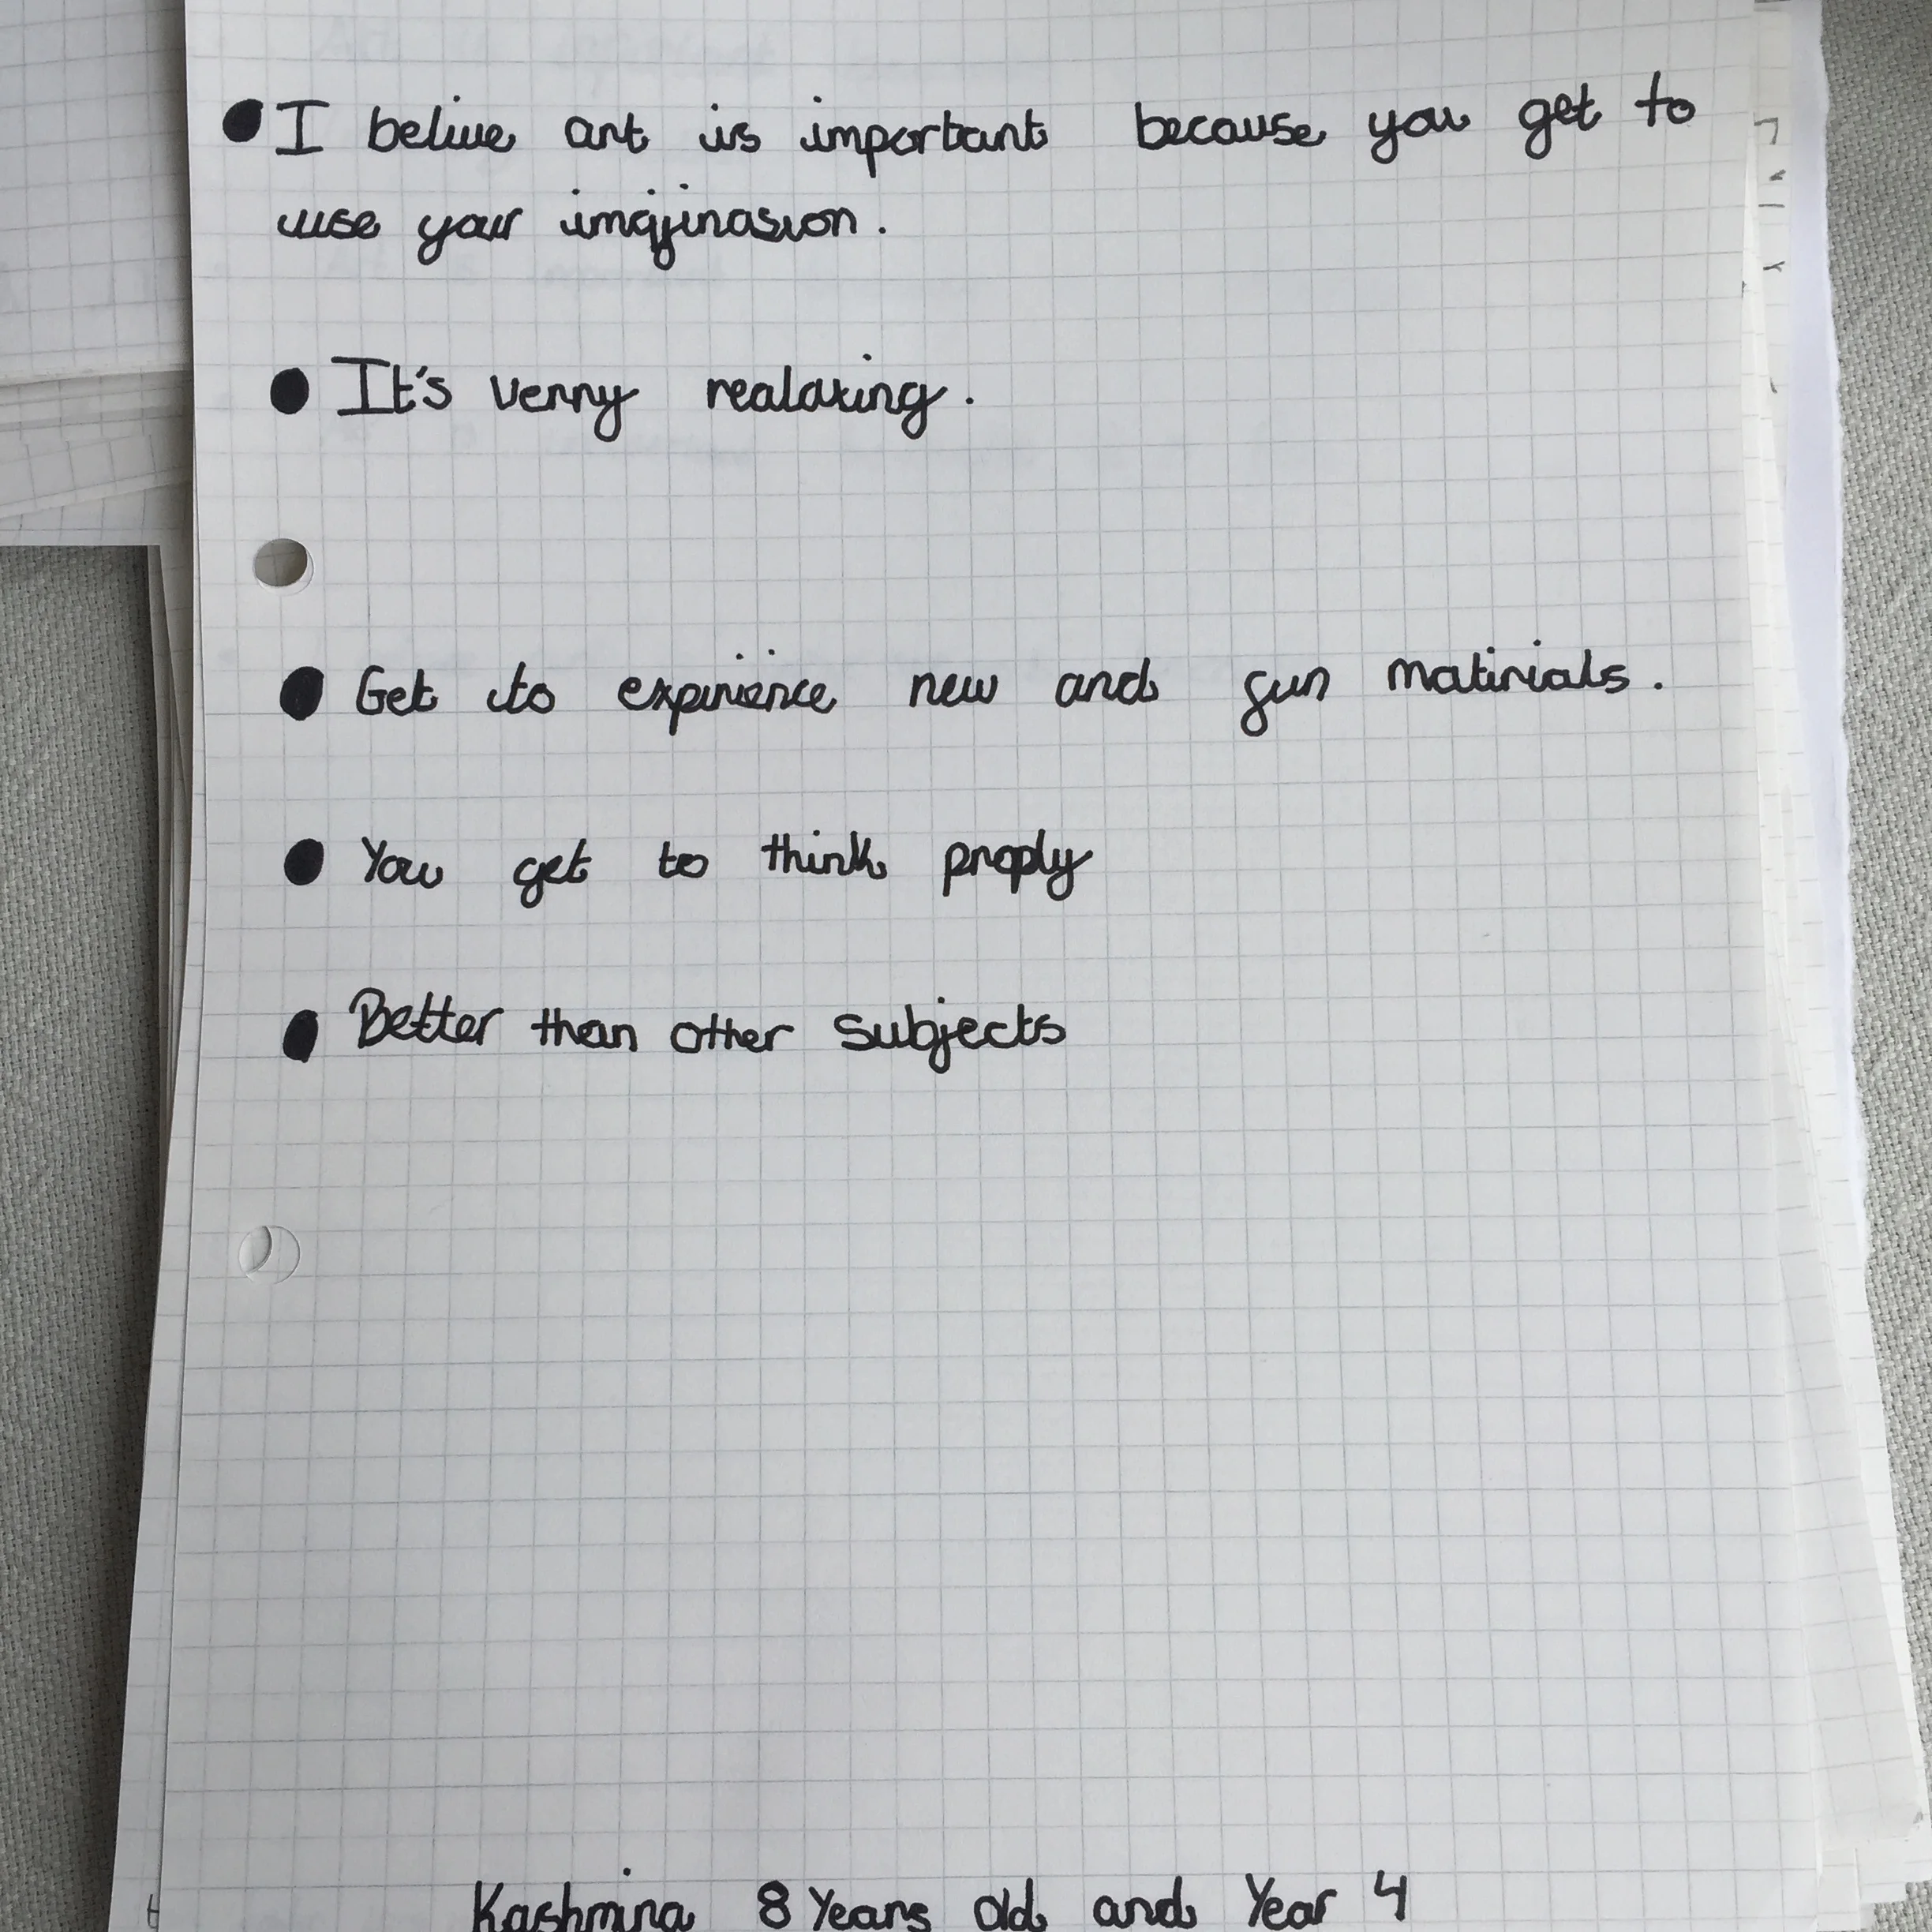 ● I belive art is important because you get to
use your imajinasion.
● It's verry realaxing.
● Get to expirience new and fun matirials.
● You get to think proply
● Better than other subjects
Kashmira 8 Years old and Year 4